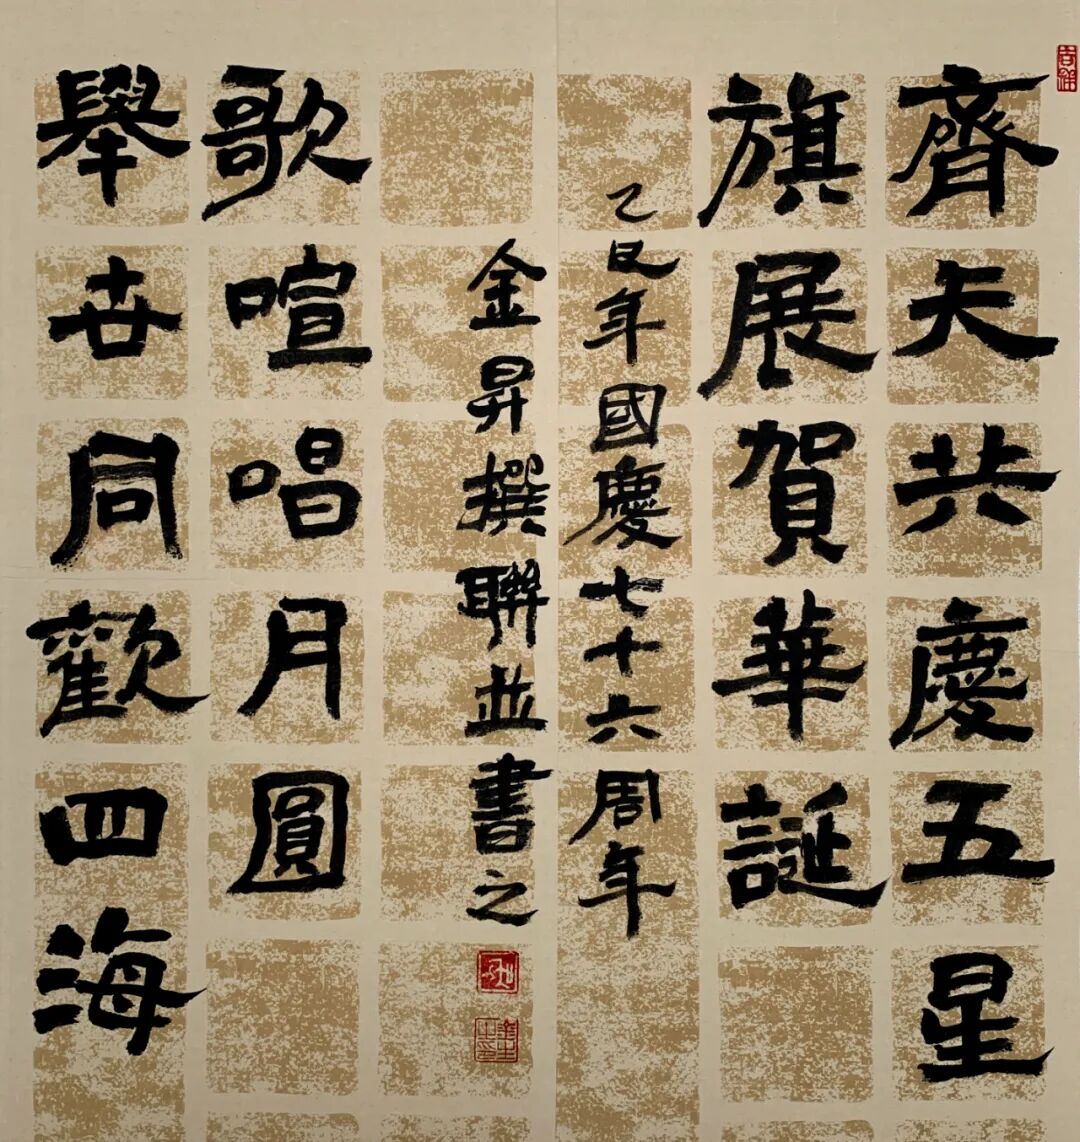 吉祥
齊天共慶五星
旗展賀華誕
舉世同歡四海
歌喧唱月圓
乙巳年國慶七十六周年
金昇撰聯並書之